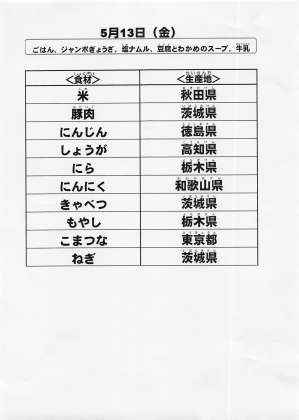 5月13日（金）
ごはん、ジャンボぎょうざ、塩ナムル、豆腐とわかめのスープ、牛乳
＜食材＞ ＜生産地＞
米 秋田県
豚肉 茨城県
にんじん 徳島県
しょうが 高知県
にら 栃木県
にんにく 和歌山県
きゃべつ 茨城県
もやし 栃木県
こまつな 東京都
ねぎ 茨城県